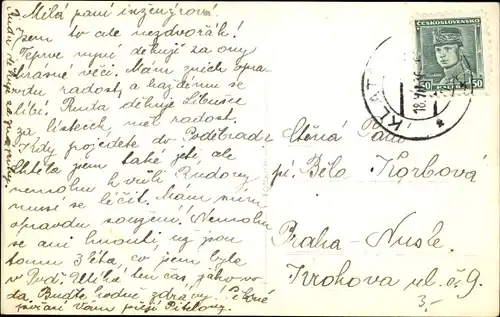 Milá paní inženýrová!
Jsem to ale nezdvořák!
Teprve nyní děkuji za ony
krásné věci. Mám z nich opra-
vdu radost, a každému se
líbí. Ruda děkuje Libušce
za lísteček, měl radost.
Kdy pojedete do Poděbrad?
Chtěla jsem také jeti, ale
nemohu k vůli Rudovi,
musí se léčit. Mám s ním
opravdu soužení! Nemohu
se ani hnouti, už jsou
tomu 3 léta, co jsem byla
v Poď. Utíká ten čas, jako vo-
da. Buďte hodně zdrávi!
Vám
Ruda děkuje za
ČESKOSLOVENSKO
50 50
KLAT
18.
Ctěná Paní
pí. Běla Korbová
Praha-Nusle.
Krokova ul. č. 9.
3,-